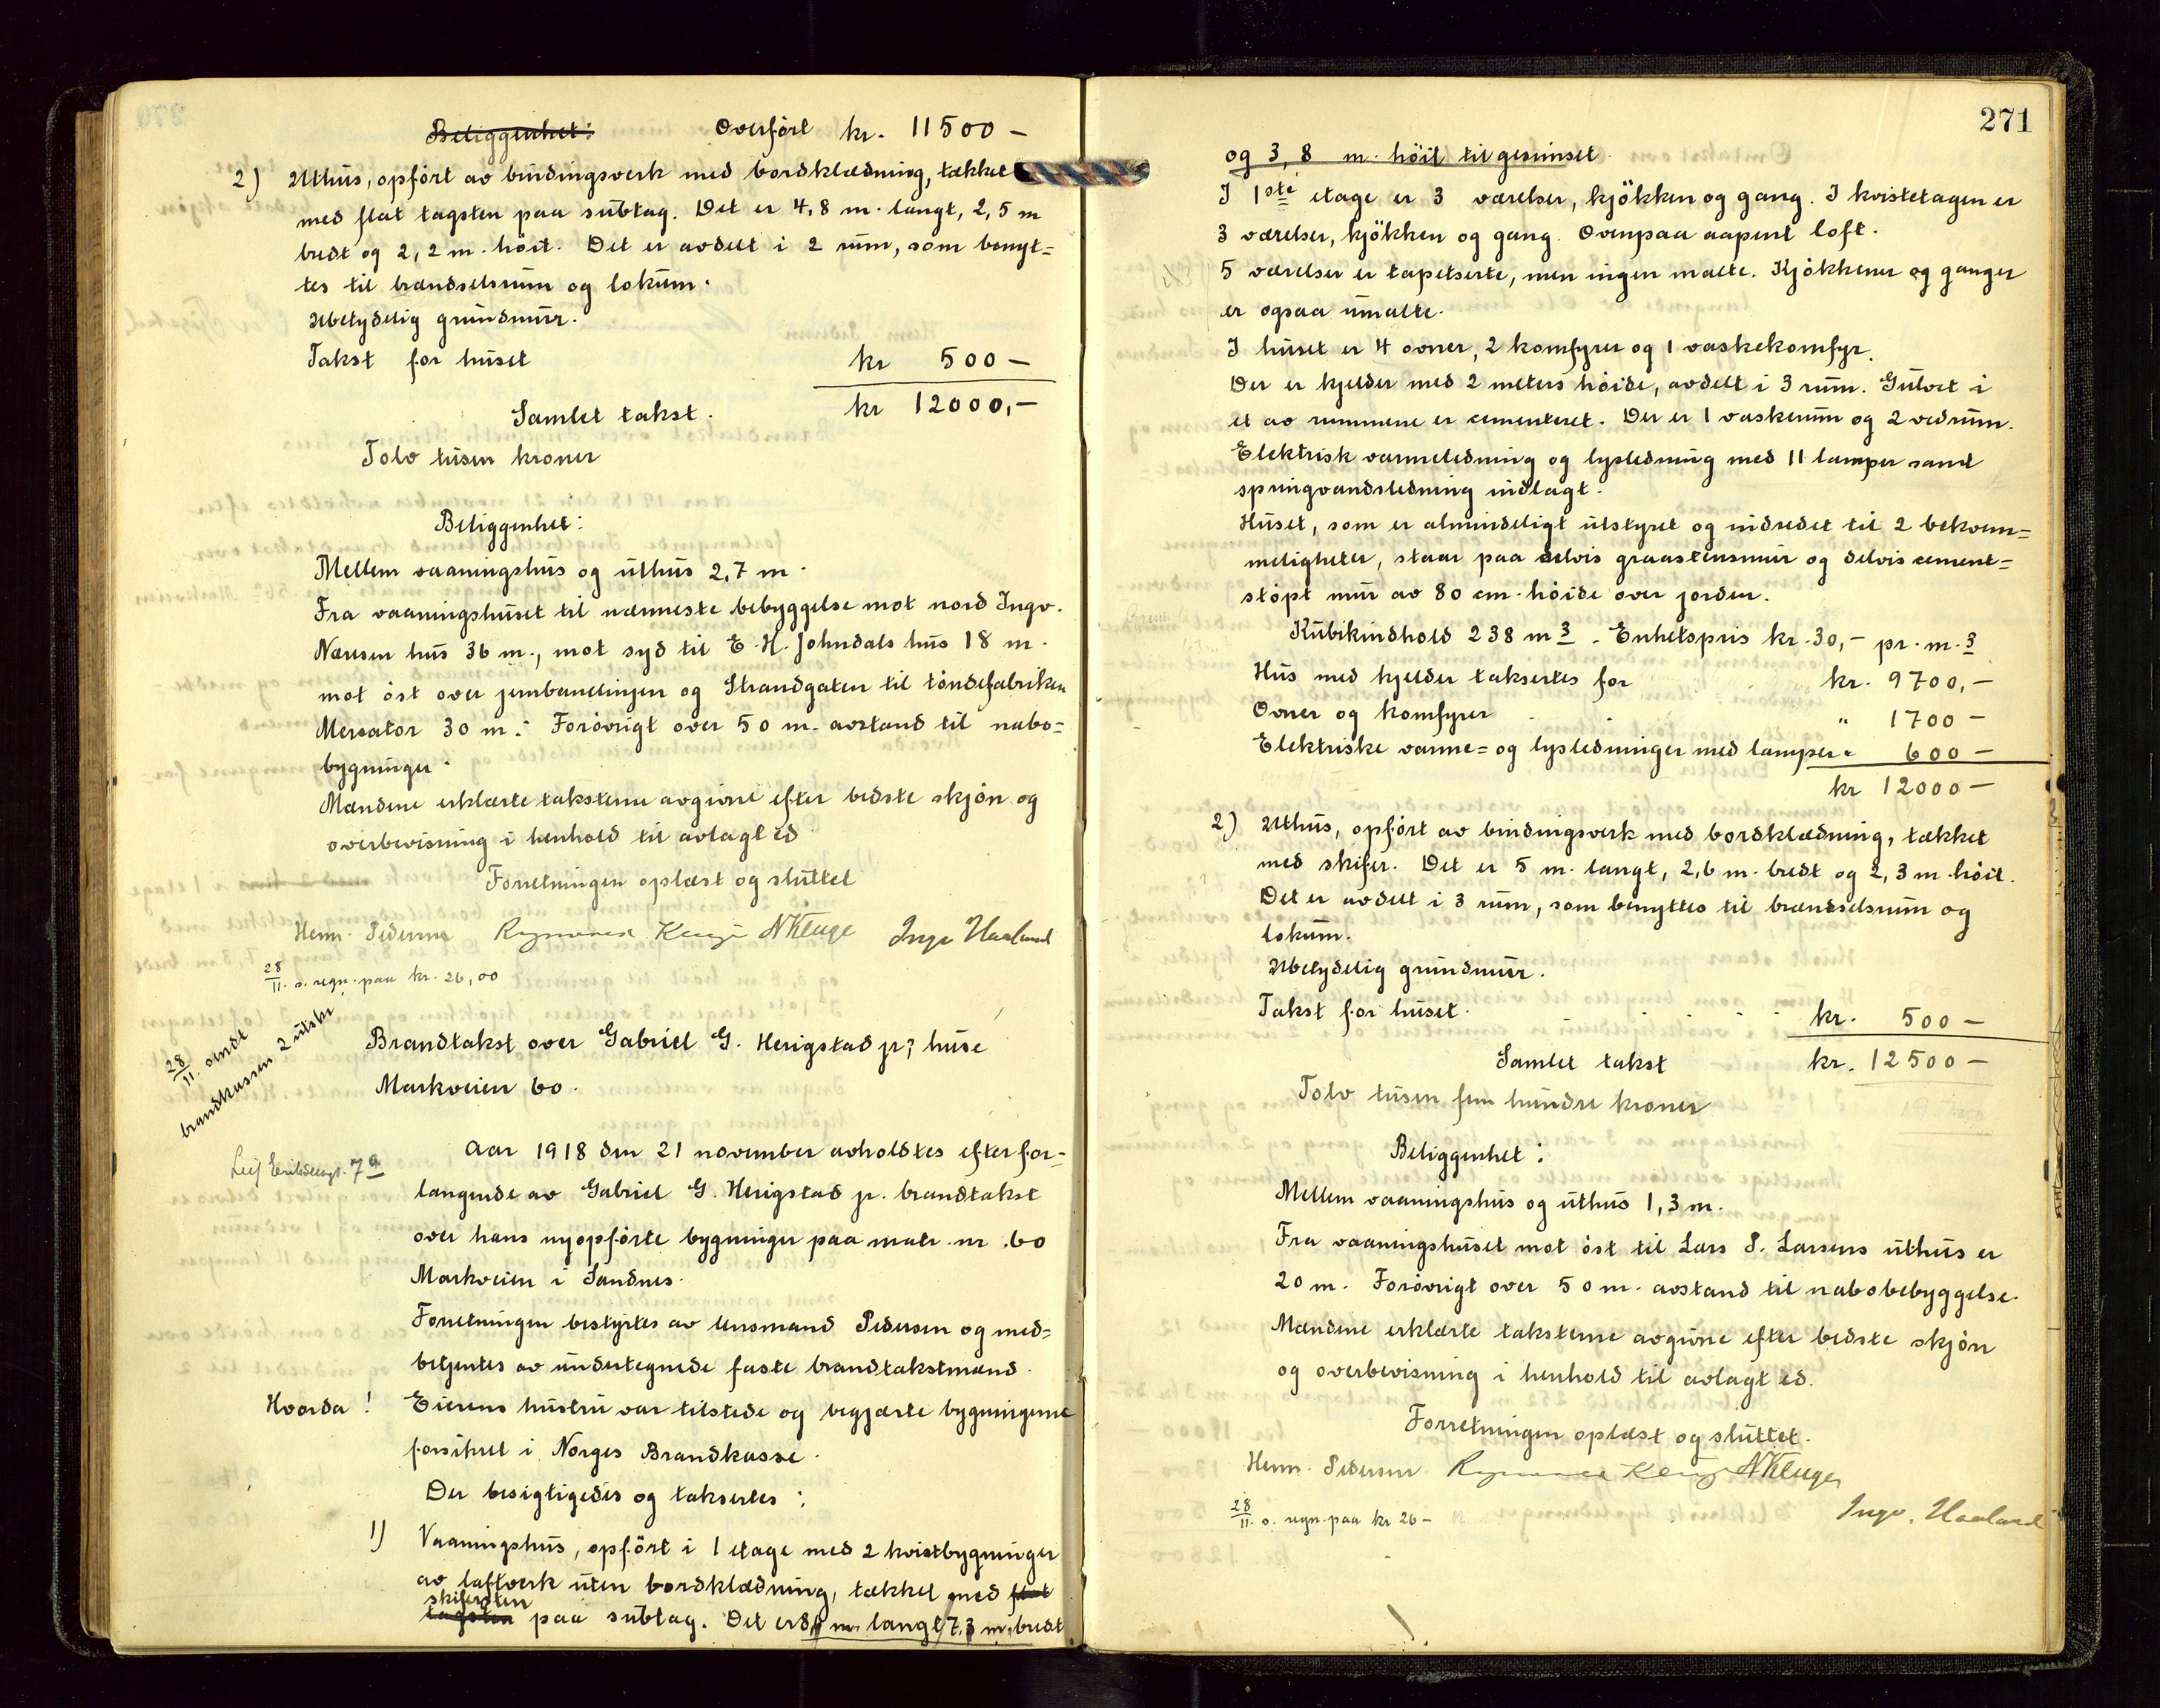 Beliggenhet: Overført kr. 11500 –
2) Uthus, opført av bindingsverk med bordklædning, tækket
med flat tagsten paa subtag. Det er 4,8 m. langt, 2,5 m
bredt og 2,2 m. höit. Det er avdelt i 2 rum, som benyt=
tes til brændselsrum og lokum.
Ubetydelig grundmur.
Takst for huset kr 500 –
Samlet takst. kr 12000,–
Tolv tusen kroner
Beliggenhet:
Mellem vaaningshus og uthus 2,7 m.
Fra vaaningshuset til nærmeste bebyggelse mot nord Ingv.
Næresen hus 36 m., mot syd til E. H. Johndals hus 18 m.
mot öst over jernbanelinjen og Strandgaten til töndefabriken
Mercator 30 m. Forövrigt over 50 m. avstand til nabo=
bygninger.
Mændene erklærte taksterne avgivne efter bedste skjön og
overbevisning i henhold til avlagt ed
Forretningen oplæst og sluttet
Henr. Pedersen N Kluge Ingv Haaland
28/11. s. regn. paa kr. 26,00
28/11. sendt
brandkassen 2 utskr
Brandtakst over Gabriel G. Herigstad jr.s huse
Markveien 60.
Leif Eriksensgt. 7a
Aar 1918 den 21 november avholdtes efter for=
langende av Gabriel G. Herigstad jr. brandtakst
over hans nyopförte bygninger paa matr. nr. 60
Markveien i Sandnes.
Forretningen bestyrtes av lensmand Pedersen og med=
betjentes av undertegnede faste brandtakstmænd.
Hvorda! Eierens hustru var tilstede og begjærte bygningerne
forsikret i Norges Brandkasse.
Der besigtigedes og takseredes:
1) Vaaningshus, opfört i 1 etage med 2 kvistbygninger
av laftverk uten bordklædning, tækket med flat
skifersten
tagsten paa subtag. Det er 8, m. langt, 7,3 m. bredt
271
og 3,8 m. höit til gesimset.
I 1ste etage er 3 værelser, kjökken og gang. I kvistetagen er
3 værelser, kjökken og gang. Ovenpaa aapent loft.
5 værelser er tapetserte, men ingen malte. Kjökkener og ganger
er ogsaa umalte.
I huset er 4 ovner, 2 komfyrer og 1 vaskekomfyr.
Der er kjelder med 2 meters höide, avdelt i 3 rum. Gulvet i
et av rummene er cementeret. Der er 1 vaskerum og 2 vedrum.
Elektrisk varmeledning og lysledning med 11 lamper samt
springvandsledning indlagt.
Huset, som er almindeligt utstyret og indredet til 2 bekvem=
meligheter, staar paa delvis graastensmur og delvis cement=
stöpt mur av 80 cm. höide over jorden.
Kubikindhold 238 m3. Enhetspris kr. 30,– pr. m.3
Hus med kjelder taksertes for kr. 9700,–
Ovner og komfyrer " 1700 –
Elektriske varme= og lysledninger med lamper " 600 –
kr 12000 –
2) Uthus, opfört av bindingsverk med bordklædning, tækket
med skifer. Det er 5 m. langt, 2,6 m. bredt og 2,3 m. höit.
Det er avdelt i 3 rum, som benyttes til brændselsrum og
lokum.
Ubetydelig grundmur.
Takst for huset. kr. 500 –
Samlet takst kr. 12500 –
Tolv tusen fem hundre kroner
Beliggenhet:
Mellem vaaningshus og uthus 1,3 m.
Fra vaaningshuset mot öst til Lars P. Larsens uthus er
20 m. Forövrigt over 50 m. avstand til nabobebyggelse.
Mændene erklærte taksterne avgivne efter bedste skjön
og overbevisning i henhold til avlagt ed.
Forretningen oplæst og sluttet.
Henr. Pedersen N Kluge
Ingv. Haaland
28/11. s. regn. paa kr 26 –